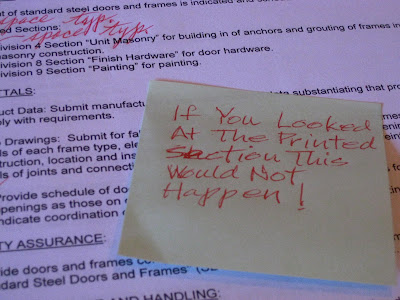 of standard steel doors and frames is indicated and
space typ.
ed Sections:
space typ.
ivision 4 Section "Unit Masonry" for building in of anchors and grouting of frames in
masonry construction.
ivision 8 Section "Finish Hardware" for door hardware.
ivision 9 Section "Painting" for painting.
TTALS:
uct Data: Submit manufactu
data substantiating that pro
ly with requirements.
Drawings: Submit for fa
ls of each frame type, ele
truction, location and ins
ls of joints and connectio
Provide schedule of doo
penings as those on
ndicate coordination
TY ASSURANCE:
ide doors and frames co
Standard Steel Doors and Frames"
AND HANDLING:
If You Looked
At The Printed
Section This
Would Not
Happen!